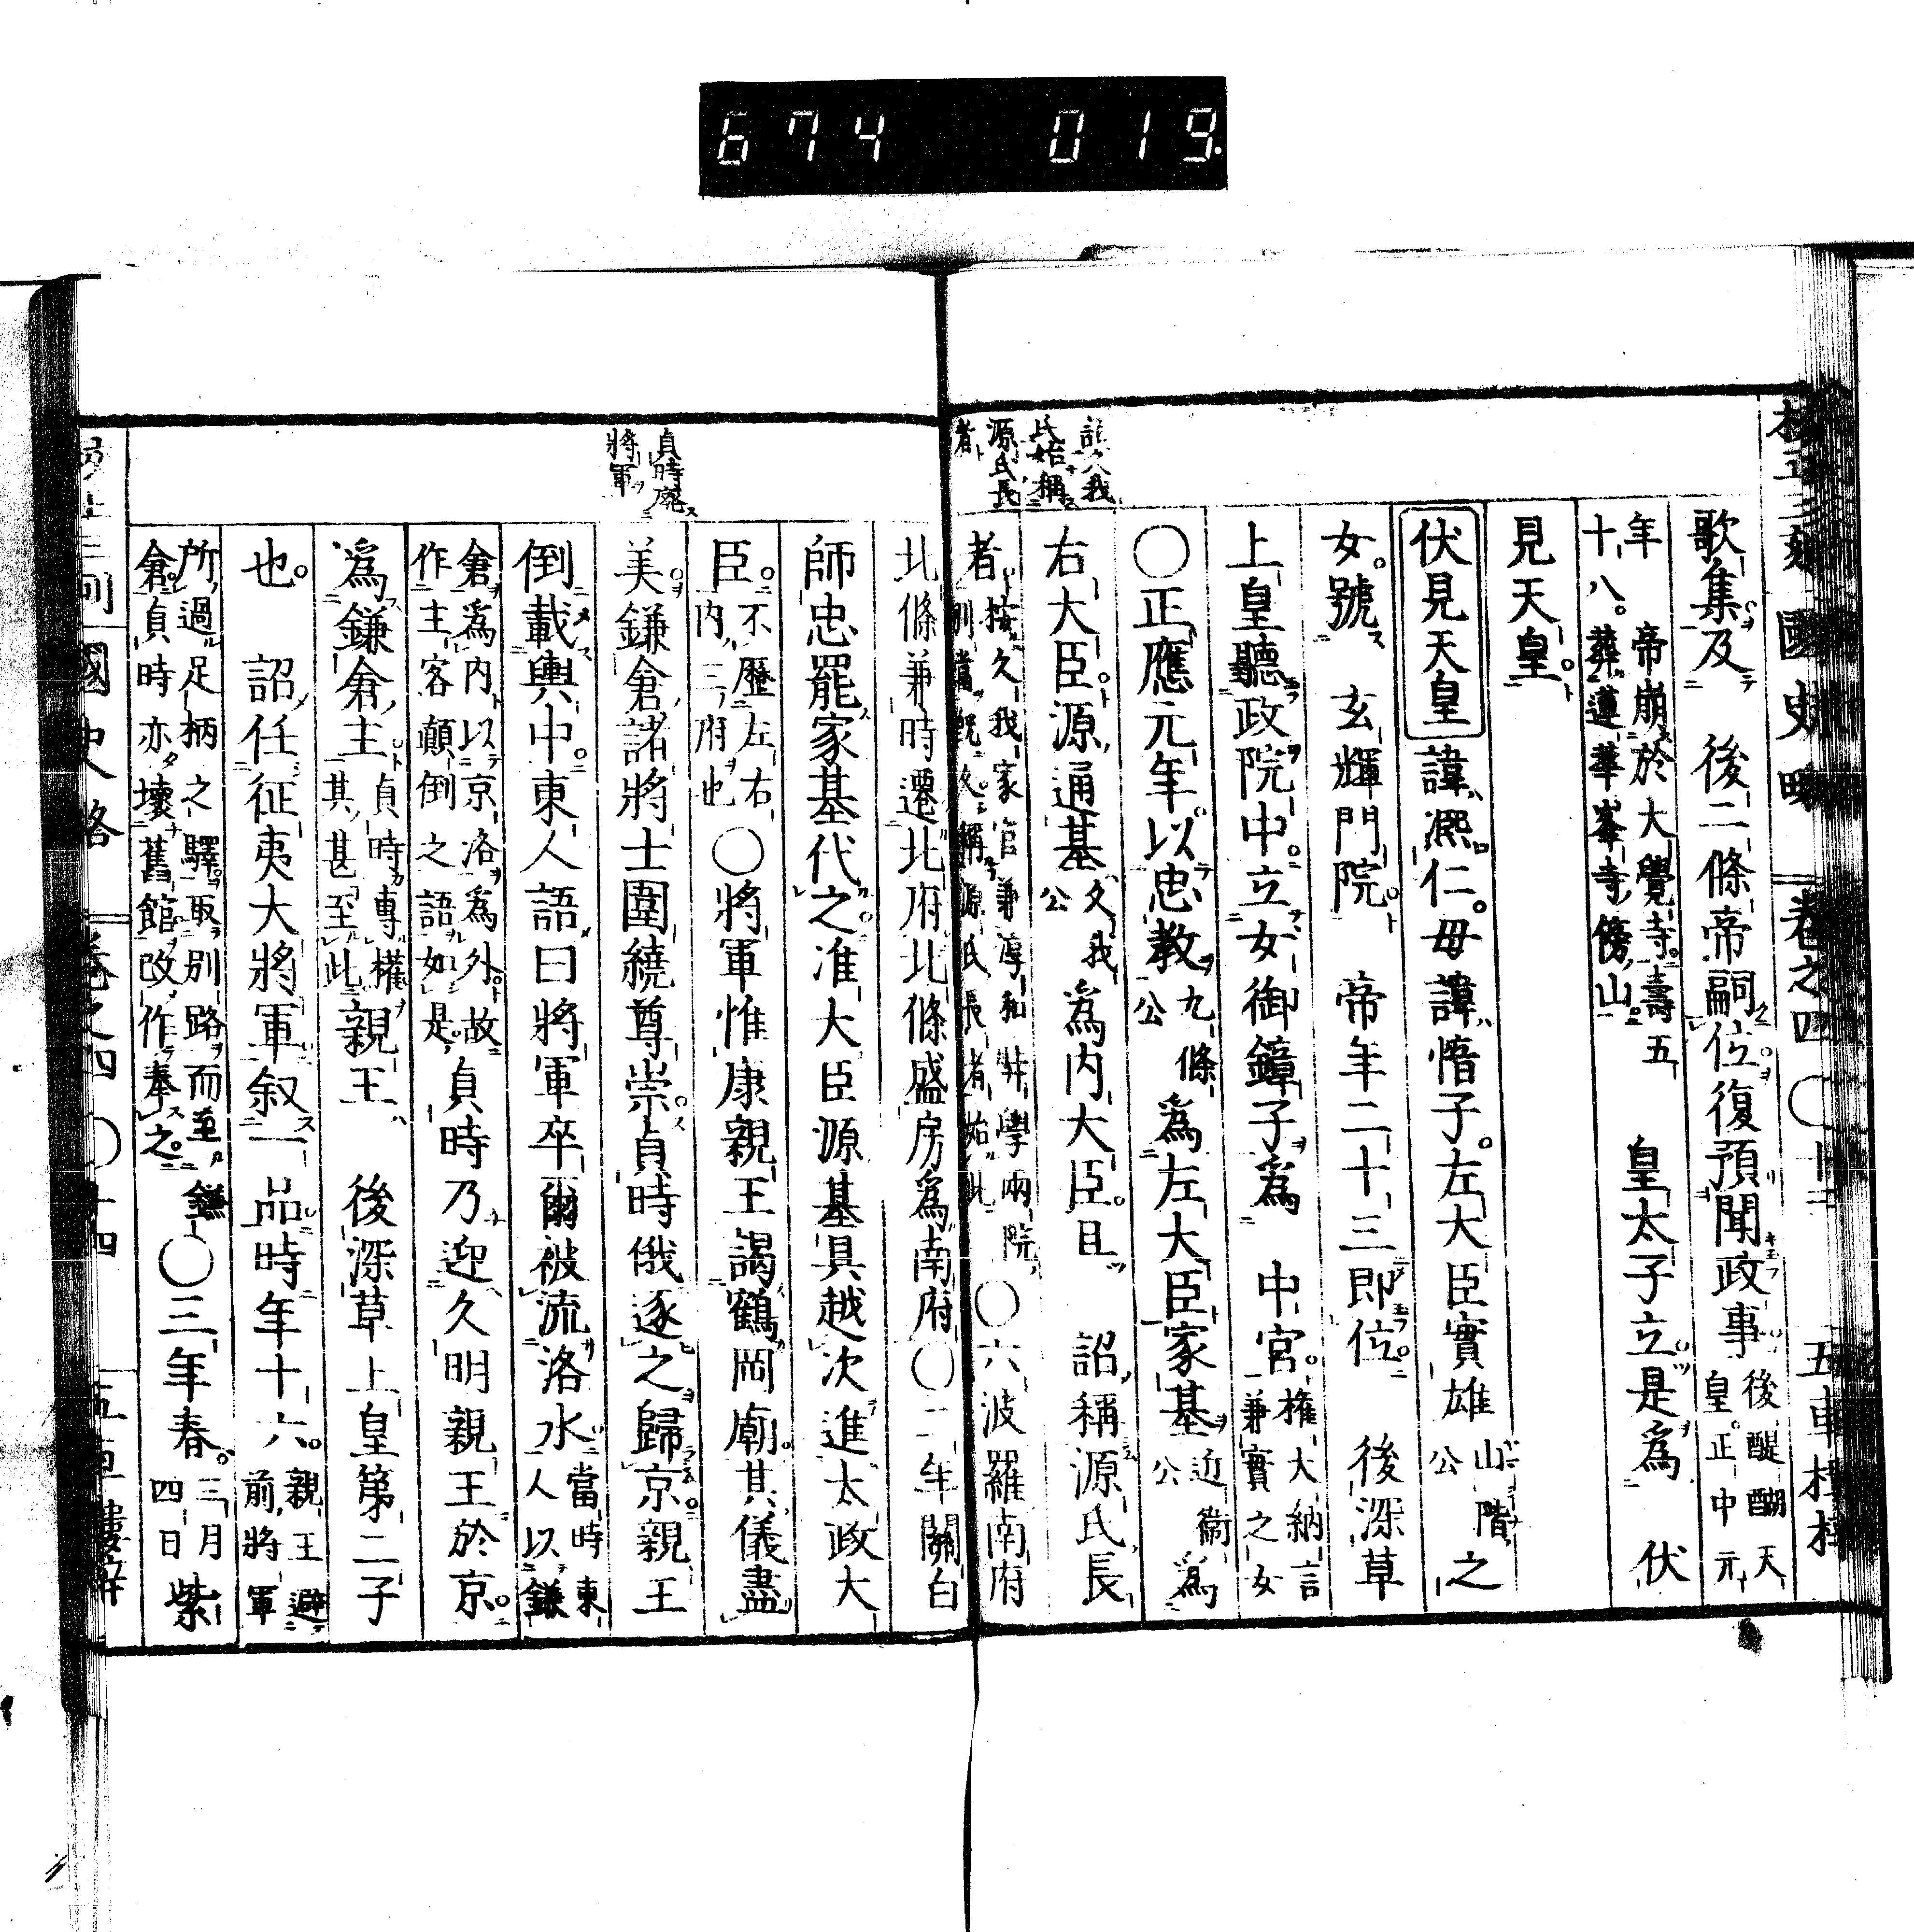 674 019
國史略 卷之四 〇十三 五車樓梓
歌集及 後二條帝嗣位復預聞政事 後醍醐天皇正中元
年 帝崩於大覺寺壽五十八葬蓮華峯寺傍山 皇太子立是爲 伏
見天皇
伏見天皇 諱熈仁母諱愔子左大臣實雄 山階公 之
女號 玄輝門院 帝年二十三即位 後深草
上皇聽政院中立女御鏱子爲 中宮 權大納言兼實之女
〇正應元年以忠教 九條公 爲左大臣家基 近衞公 爲
右大臣源通基 久我公 爲内大臣且 詔稱源氏長
者 按久我家官兼淳和奬學兩院別當 稱源氏長者始此 〇六波羅南府
氏始稱
源氏長
者
北條兼時遷北府北條盛房爲南府〇二年關白
師忠罷家基代之准大臣源基具越次進太政大
臣 不歷左右内三府也 〇將軍惟康親王謁鶴岡廟其儀盡
美鎌倉諸將士圍繞尊崇貞時俄逐之歸京親王
貞時廢
將軍
倒載輿中東人語曰將軍卒爾被流洛水 當時東人以鎌
倉爲内以京洛爲外故作主客顛倒之語如是 貞時乃迎久明親王於京
爲鎌倉主 貞時專權其甚至此 親王 後深草上皇第二子
也 詔任征夷大將軍叙一品時年十六 親王避前將軍
所過足柄之驛取別路而至鎌倉貞時亦壞舊館改作奉之 〇三年春 三月四日 紫
國史略 卷之四 〇十四 五車樓梓